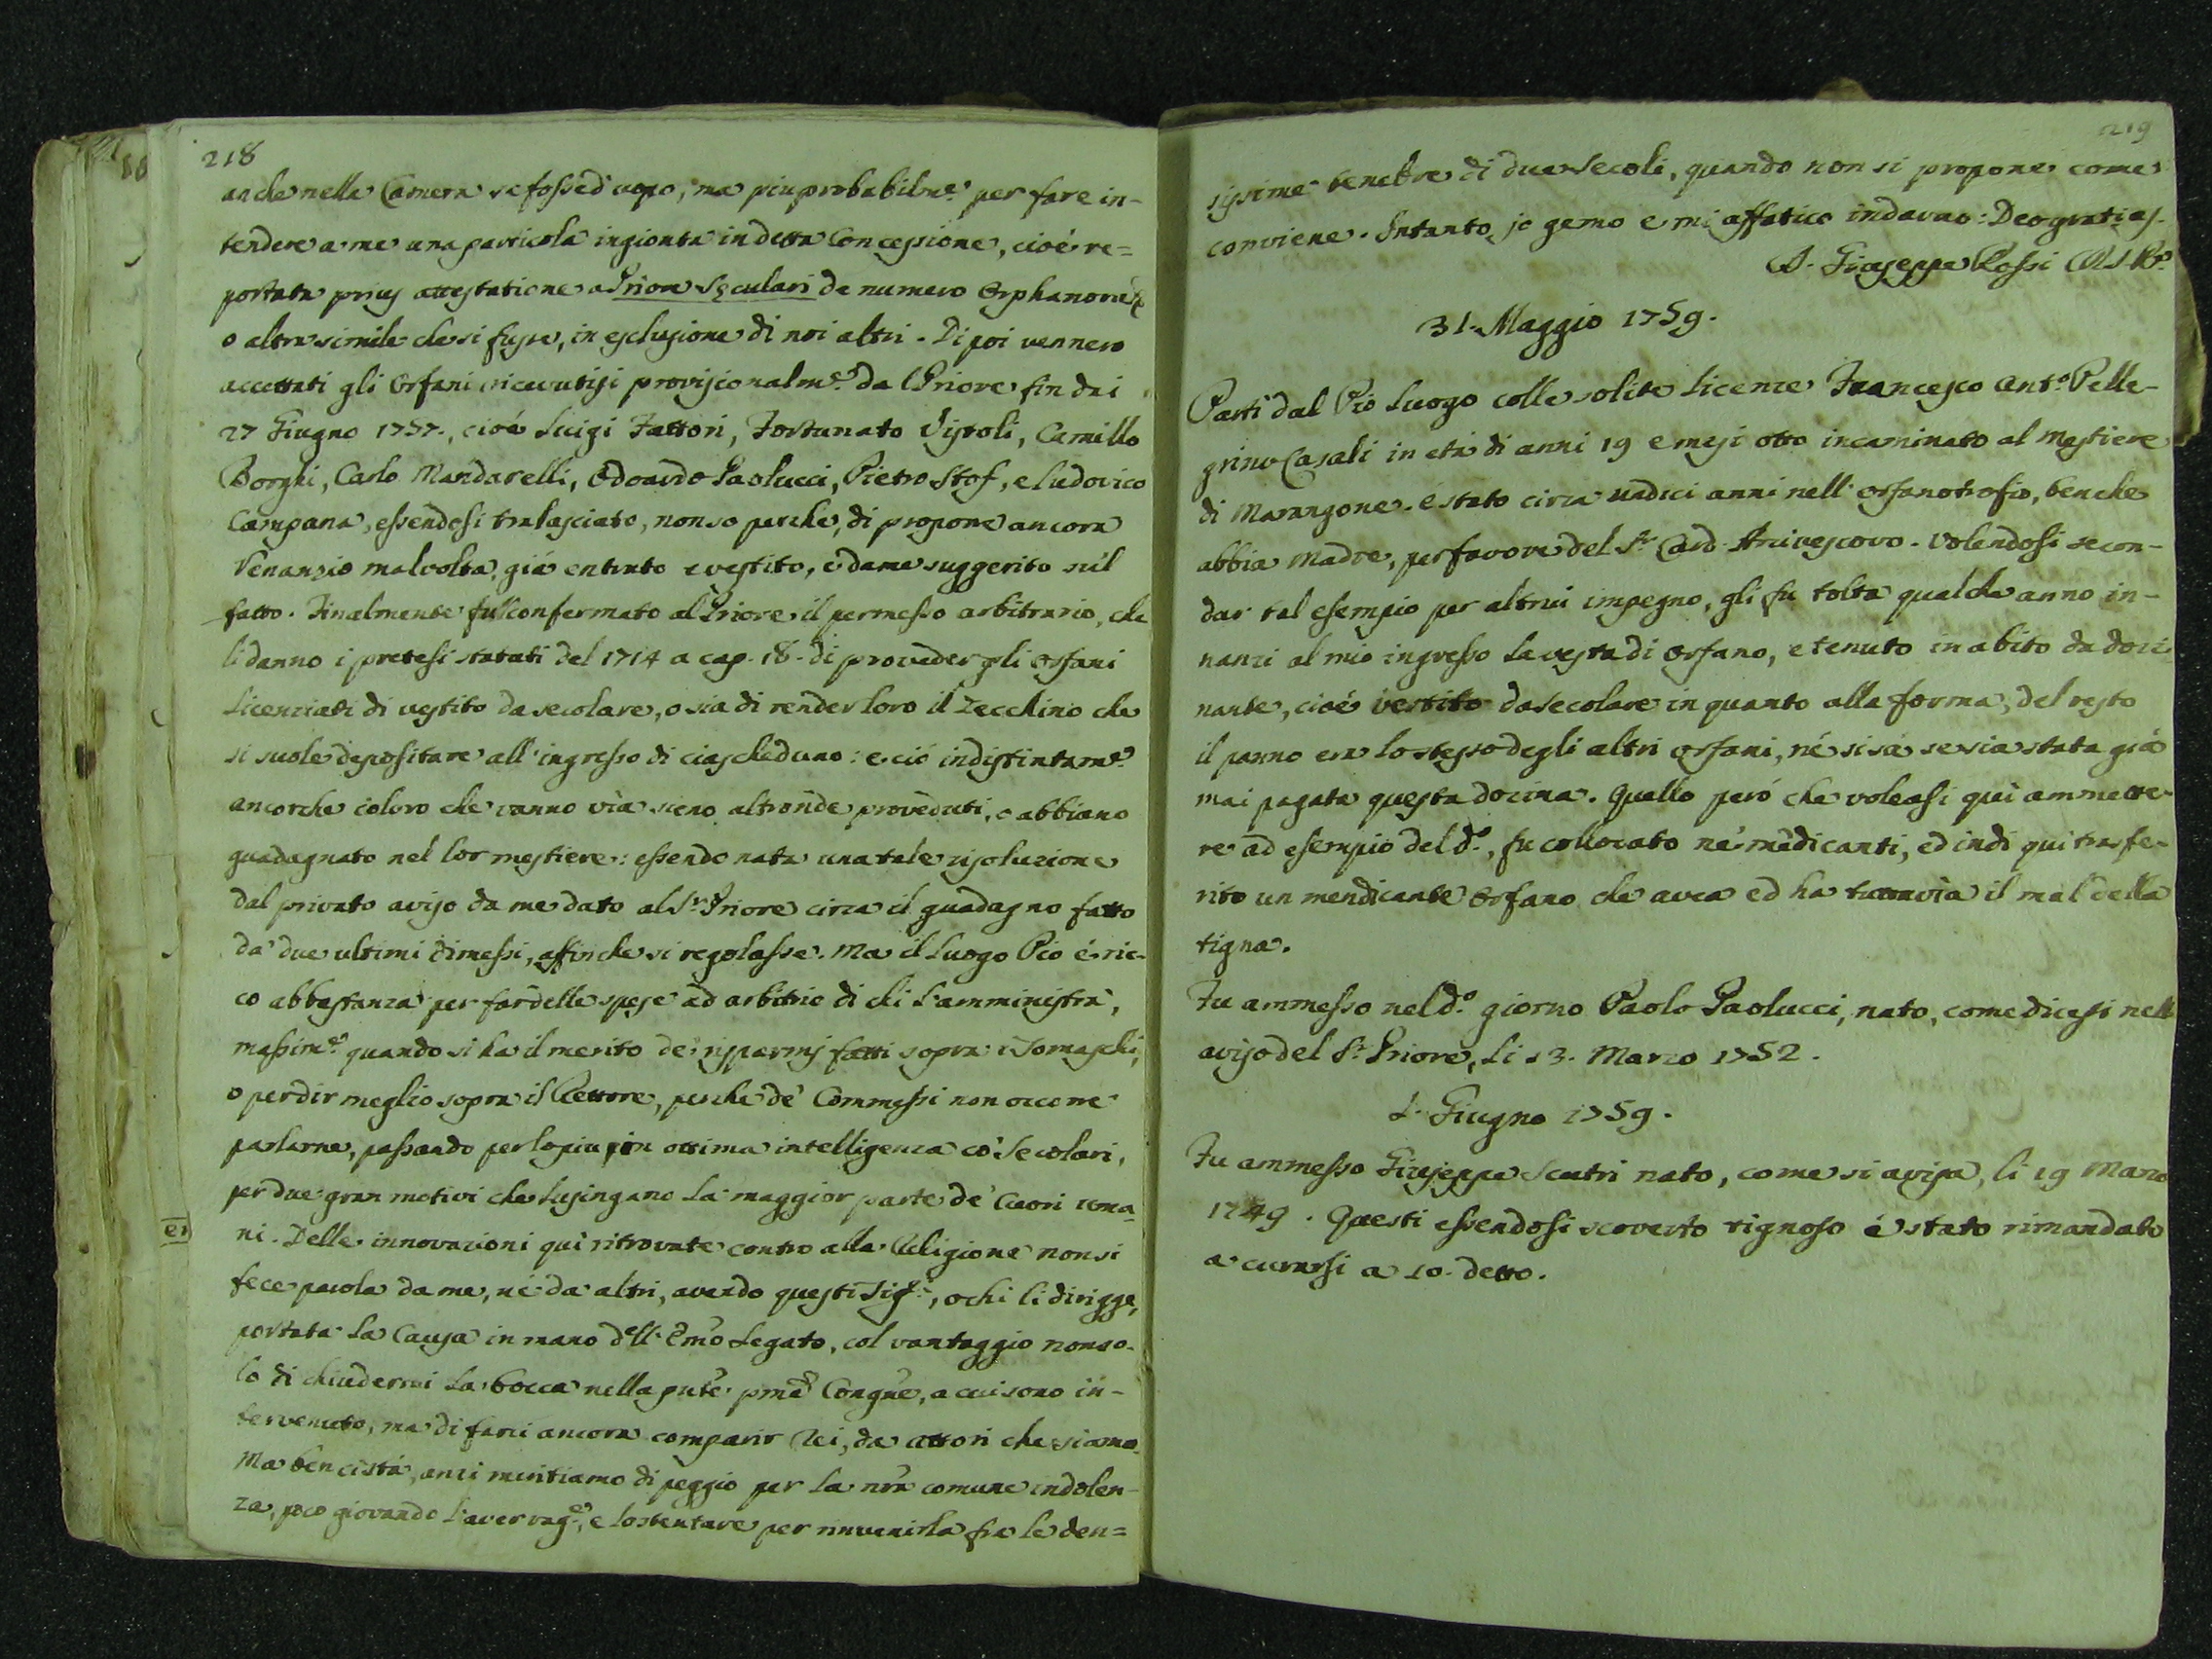 218
anche nella Camera se fosse d'uopo, ma più probabilme. per fare in-
tendere a me una particola ingionta in detta Concessione, cioé re=
portata prius attestatione a Priore Seculari de numero Orphanoru
o altra simile che si fusse, in esclusione di noi altri. Di poi vennero
accettati gli Orfani ricevutisi provisionalme. dal Priore fin dai
27 Giugno 1757., cioé Luigi Fattori, Fortunato Vistoli, Camillo
Borghi, Carlo Mandarelli, Odoardo Paolucci, Pietro Stof, e Ludovico
Campana, essendosi tralasciato, non so perche, di propone ancora
Venanzio Malvolta, giá entrato e vestito, e da me suggerito sul
fatto. Finalmente fu confermato al Priore il permesso arbitrario, che
li danno i pretesi statuti del 1714 a cap. 18. di proveder gli Orfani
Licenziati di vestito da secolare, o sia di render loro il Zecchino che
si suole depositare all'ingresso di ciascheduno: e ció indistintame.
ancorche coloro che vanno via sieno altronde proveduti, o abbiano
guadagnato nel lor mestiere: essendo nata una tale risoluzione
dal privato aviso da me dato al Sr. Priore circa il guadagno fatto
da' due ultimi dimessi, affinche si regolasse. Ma il Luogo Pio é ric-
co abbastanza per far delle spese ad arbitrio di chi l'amministra,
massime. quando si ha il merito de' risparmj fatti sopra i Somaschi,
o per dir meglio sopra il Rettore, perche de' Commessi non occorre
parlarne, passando per lo piu in ottima intelligenza co' Secolari,
per due gran motivi che lusingano la maggior parte de' Cuori uma-
ni. Delle innovazioni quì ritrovate contro alla Religione non si
fece parola da me, né da altri, avendo questi Sigri., o chi li dirigge,
portata la Causa in mano dell' Emo Legato, col vantaggio non so-
lo di chiudermi la bocca nella pnte pma Congne, a cui sono in-
tervenuto, ma di farci ancora comparir Rei, da Attori che siamo.
Ma ben ci stá, anzi meritiamo di peggio per la nra comune indolen-
za, poco giovando l'aver rage., e lo stentare per rinvenirla fra le den=
219
sissime tenebre di due Secoli, quando non si propone come
conviene. Intanto io gemo e mi affatico indarno: Deo gratias.
D. Giuseppe Rossi C.R.S. Re.
31. Maggio 1759.
Partì dal Pio Luogo colle solite licenze Francesco Anto. Pelle-
grino Casali in etá di anni 19 e mesi otto incaminato al mestiere
di Marangone. é stato circa undici anni nell'Orfanotrofio, benche
abbia Madre, per favore del Sr. Card. Arcivescovo. Volendosi secon-
dar tal esempio per altrui impegno, gli fu tolta qualche anno in-
nanzi al mio ingresso la vesta di Orfano, e tenuto in abito da dozi-
nante, cioé vestito da secolare in quanto alla forma, del resto
il panno era lo stesso degli altri Orfani, né si sa se sia stata giá
mai pagata questa dozina. Quello peró che voleasi quì ammette-
re ad esempio del do., fu collocato ne' mendicanti, ed indi quì trasfe-
rito un mendicante Orfano che avea ed ha tuttavia il mal della
tigna.
Fu ammesso nel do. giorno Paolo Paolucci, nato, come dicesi nell
aviso del Sr. Priore, li 13. Marzo 1752.
1. Giugno 1759.
Fu ammesso Giuseppe Scutri nato, come si avisa, li 19 Marzo
1749. Questi essendosi scoverto tignoso é stato rimandato
a curarsi a 10. detto.